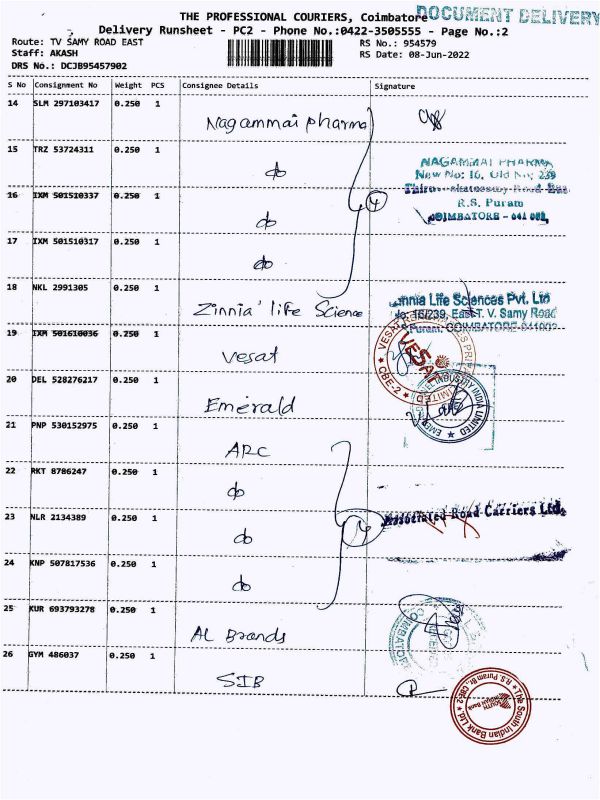 THE PROFESSIONAL COURIERS, Coimbatore
DOCUMENT DELIVERY
Delivery Runsheet - PC2 - Phone No.:0422-3505555 - Page No.:2
Route: TV SAMY ROAD EAST
RS No.: 954579
Staff: AKASH
RS Date: 08-Jun-2022
DRS No.: DCJB95457902
S No Consignment No Weight PCS Consignee Details Signature
14 SLM 297103417 0.250 1 Nagammai pharma
15 TRZ 53724311 0.250 1 do
NAGAMMAI PHARMA
New No: 16, Old No: 239
16 IXM 501510337 0.250 1 do 4
R.S. Puram
COIMBATORE - 641 002.
17 IXM 501510317 0.250 1 do
18 NKL 2991305 0.250 1 Zinnia life Science
Zinnia Life Sciences Pvt. Ltd
No. 16/239, East T. V. Samy Road
Puram, COIMBATORE-641002
19 IXM 501610036 0.250 1 Vesat
VESAT
CBE-2
LIMITED
20 DEL 528276217 0.250 1 Emerald
INDUSTRY INDIA LIMITED
21 PNP 530152975 0.250 1 ARC
22 RKT 8786247 0.250 1 do
23 NLR 2134389 0.250 1 do 4
Associated Road Carriers Ltd.
24 KNP 507817536 0.250 1 do
25 KUR 693793278 0.250 1 AL Brands
COIMBATORE
26 GYM 486037 0.250 1 SIB
The South Indian Bank Ltd.
R.S. Puram Br. CBE-2